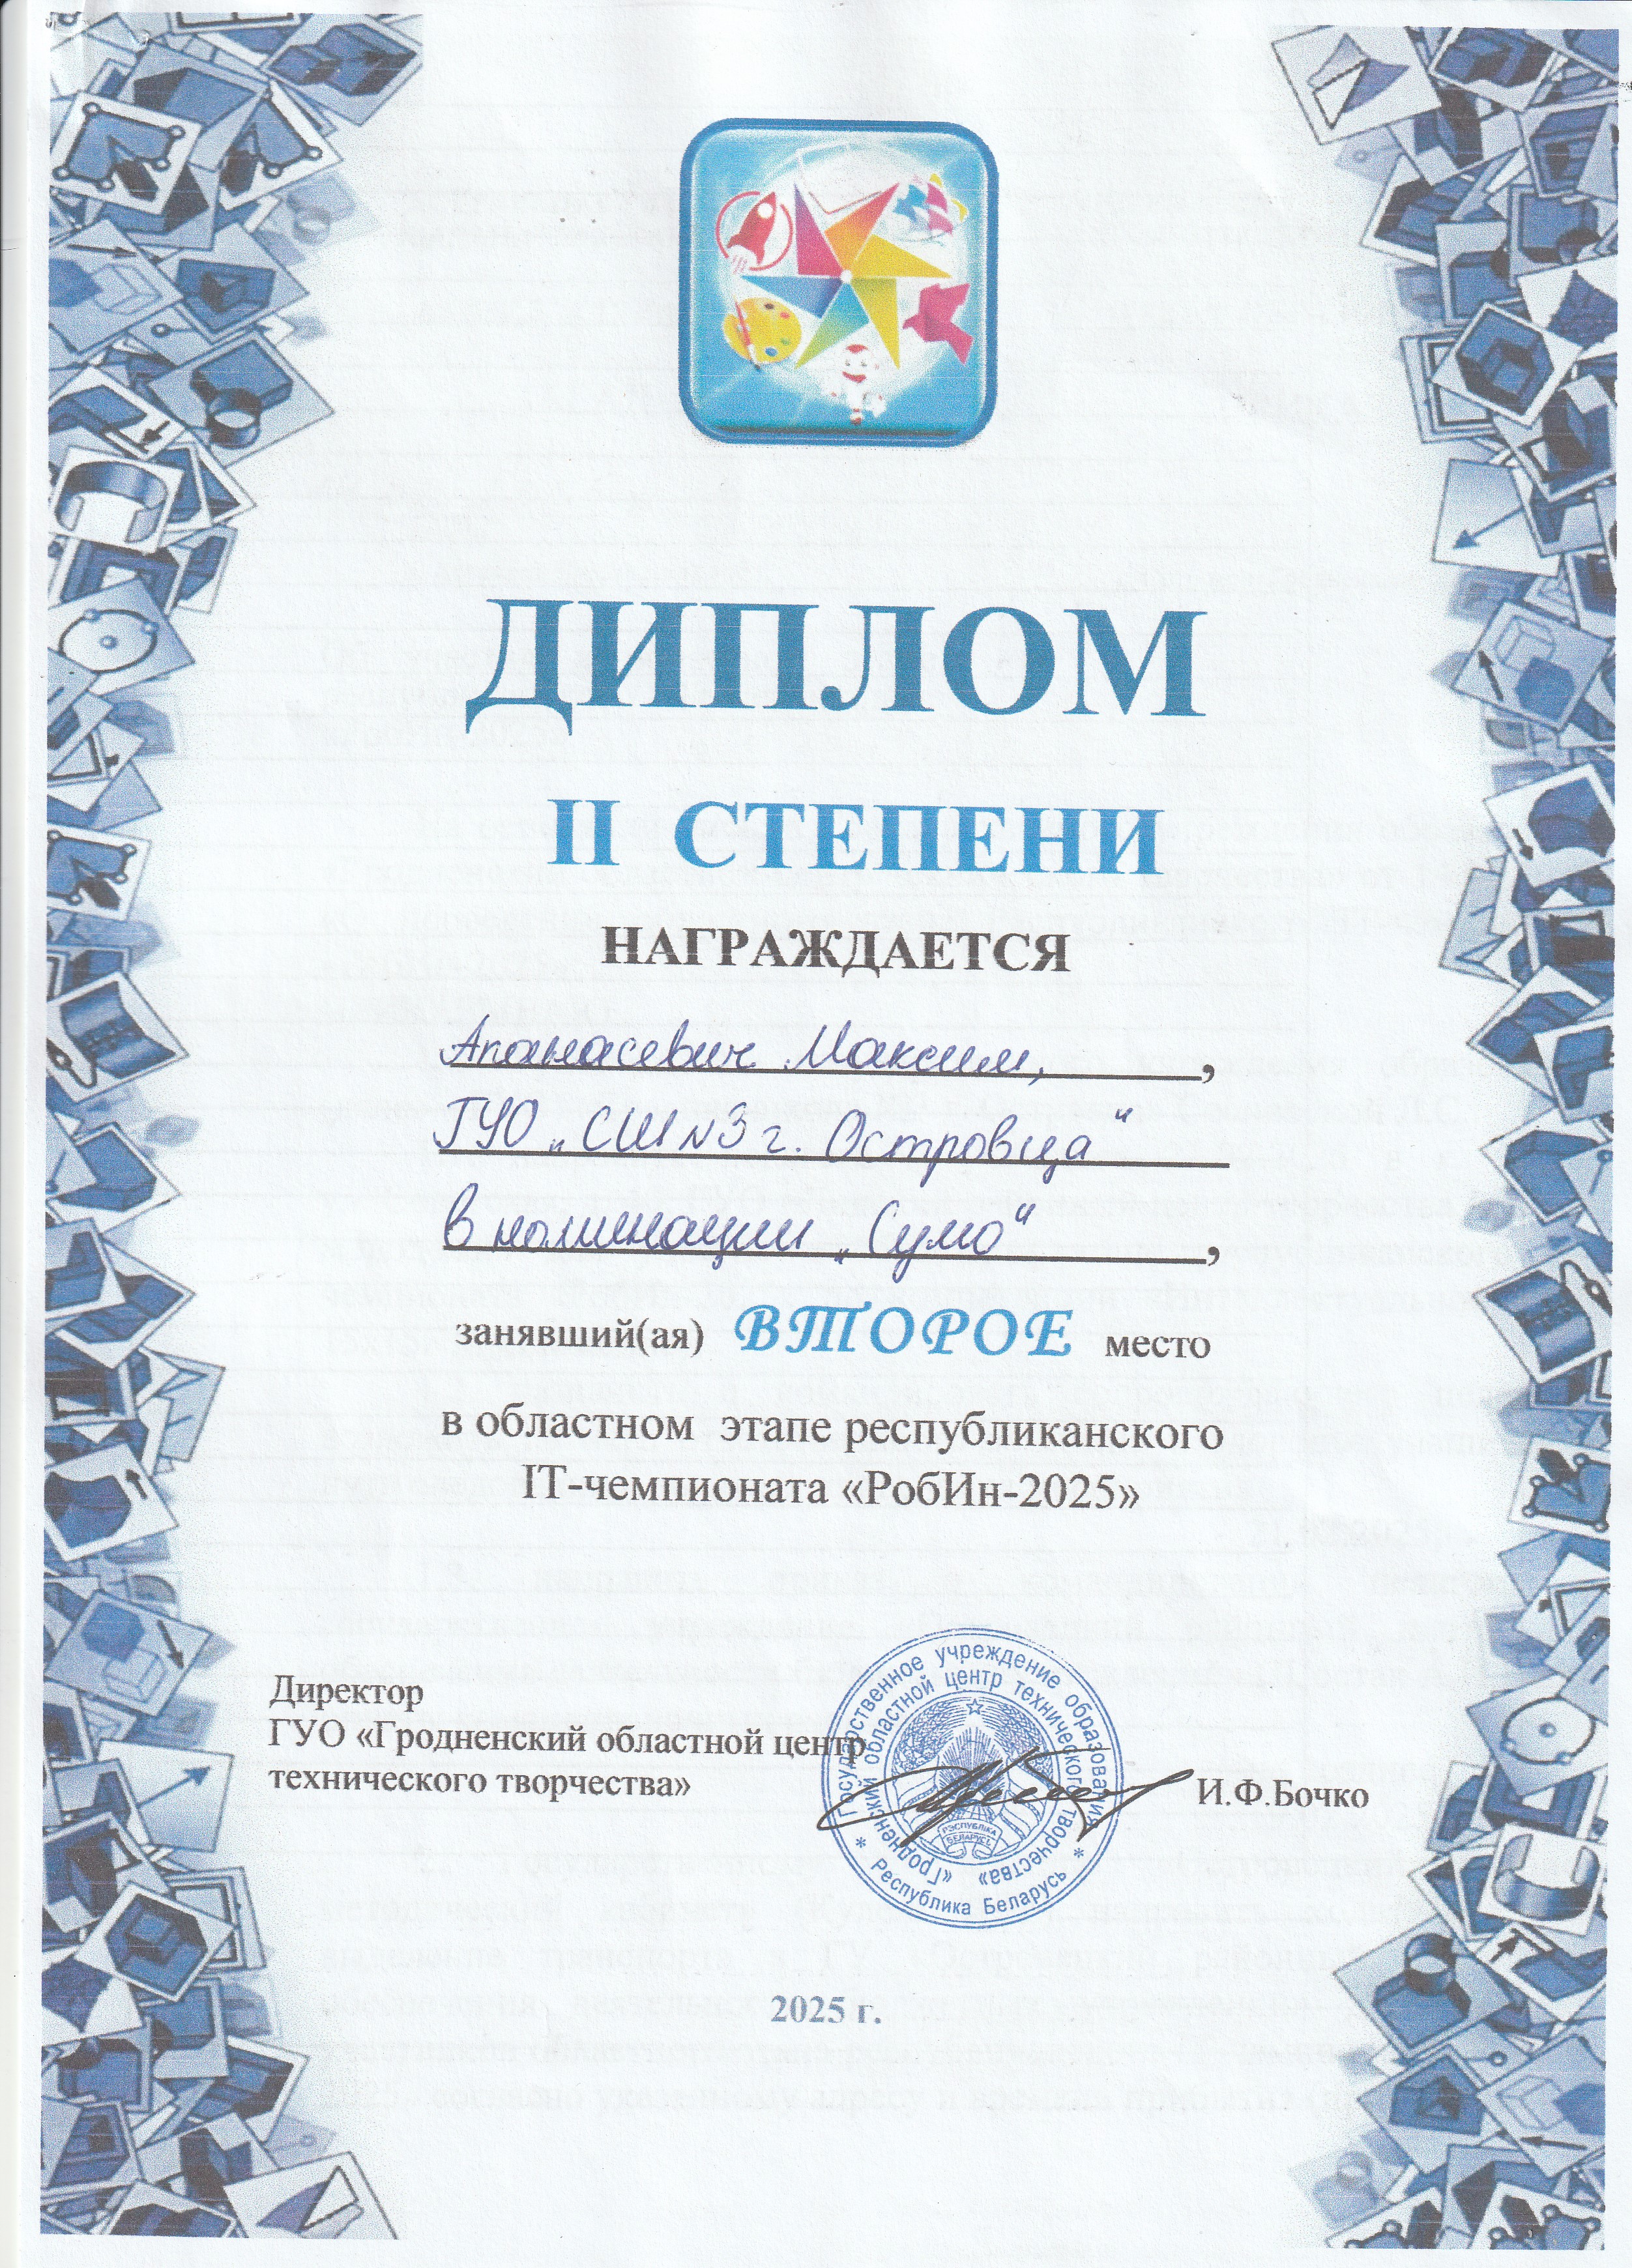 ДИПЛОМ
II СТЕПЕНИ
НАГРАЖДАЕТСЯ
Апанасевич Максим, ,
ГУО „СШ №3 г. Островца“
в номинации „Сумо“ ,
занявший(ая) ВТОРОЕ место
в областном этапе республиканского
IT-чемпионата «РобИн-2025»
Директор
ГУО «Гродненский областной центр
технического творчества»
И.Ф.Бочко
Государственное учреждение образования
«Гродненский областной центр технического творчества»
* Республика Беларусь *
РЭСПУБЛІКА
БЕЛАРУСЬ
2025 г.